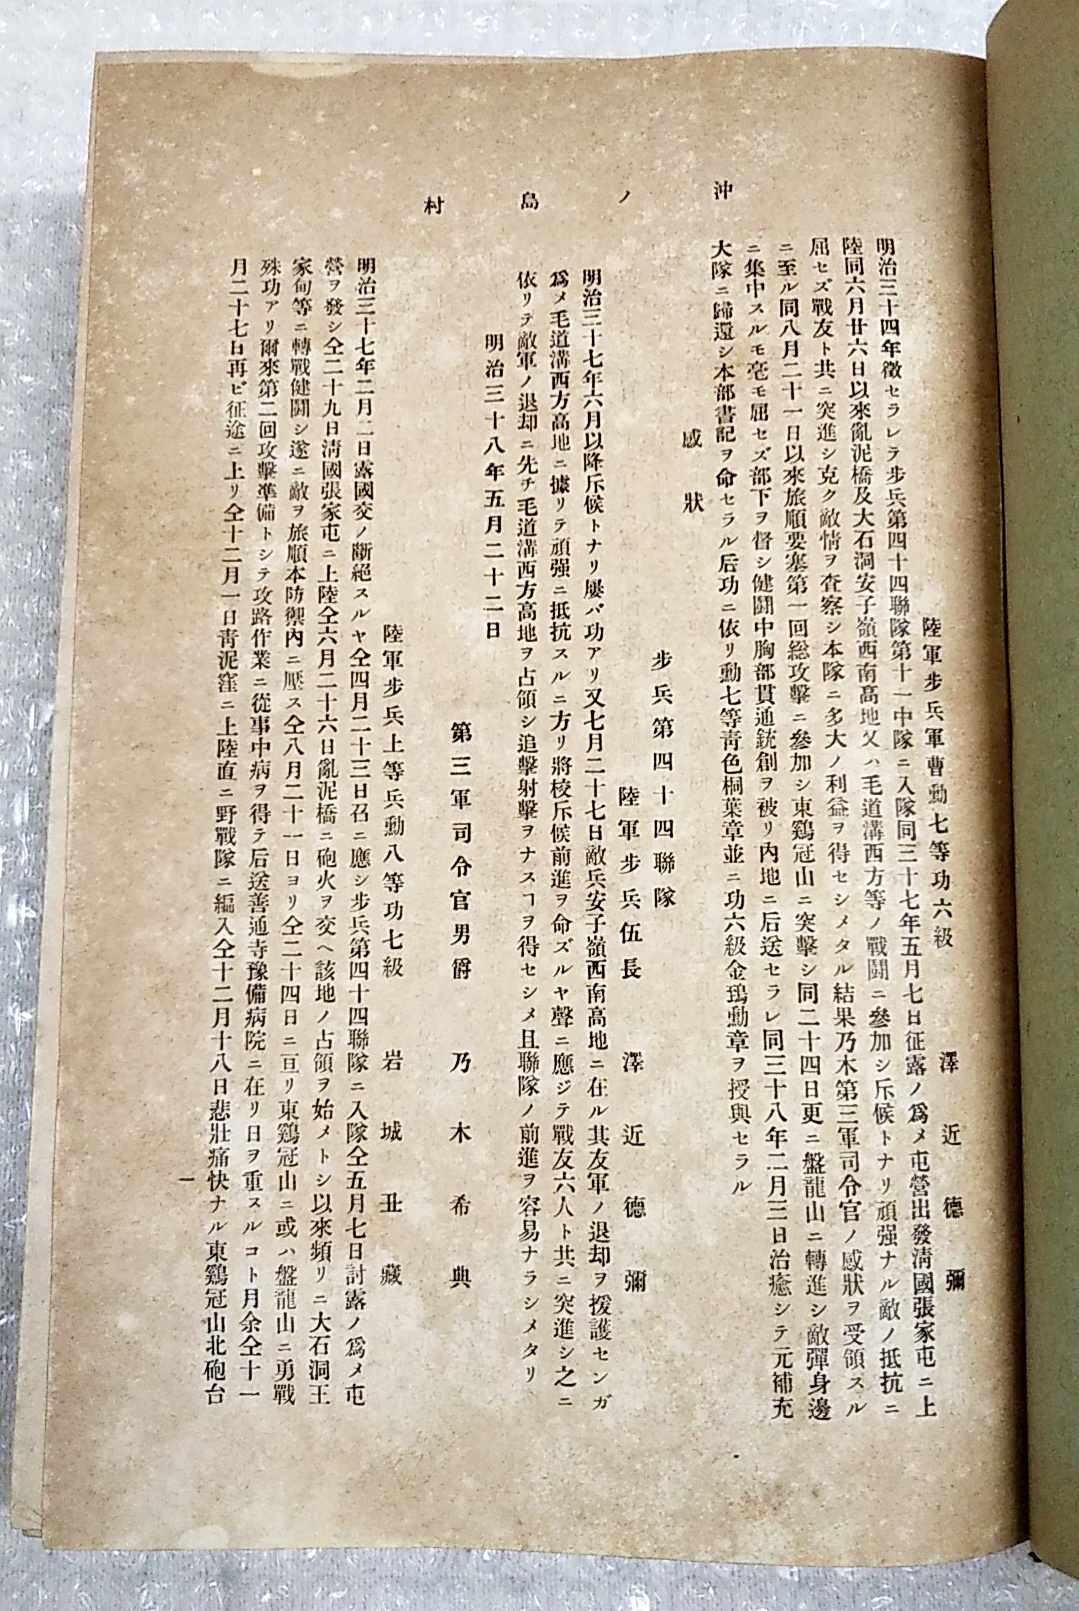 沖ノ島村
陸軍歩兵軍曹勳七等功六級 澤近德彌
明治三十四年徴セラレテ步兵第四十四聯隊第十一中隊ニ入隊同三十七年五月七日征露ノ爲メ屯營出發淸國張家屯ニ上
陸同六月廿六日以來亂泥橋及大石洞安子嶺西南高地又ハ毛道溝西方等ノ戰鬪ニ參加シ斥候トナリ頑强ナル敵ノ抵抗ニ
屈セズ戰友ト共ニ突進シ克ク敵情ヲ査察シ本隊ニ多大ノ利益ヲ得セシメタル結果乃木第三軍司令官ノ感狀ヲ受領スル
ニ至ル同八月二十一日以來旅順要塞第一回総攻擊ニ參加シ東鷄冠山ニ突擊シ同二十四日更ニ盤龍山ニ轉進シ敵彈身邊
ニ集中スルモ毫モ屈セズ部下ヲ督シ健鬪中胸部貫通銃創ヲ被リ內地ニ后送セラレ同三十八年二月三日治癒シテ元補充
大隊ニ歸還シ本部書記ヲ命セラル后功ニ依リ勳七等靑色桐葉章並ニ功六級金鵄勳章ヲ授與セラル
感狀
步兵第四十四聯隊
陸軍步兵伍長 澤近德彌
明治三十七年六月以降斥候トナリ屢バ功アリ又七月二十七日敵兵安子嶺西南高地ニ在ル其友軍ノ退却ヲ援護センガ
爲メ毛道溝西方高地ニ據リテ頑强ニ抵抗スルニ方リ將校斥候前進ヲ命ズルヤ聲ニ應ジテ戰友六人ト共ニ突進シ之ニ
依リテ敵軍ノ退却ニ先チ毛道溝西方高地ヲ占領シ追擊射擊ヲナスヿヲ得セシメ且聯隊ノ前進ヲ容易ナラシメタリ
明治三十八年五月二十二日
第三軍司令官男爵 乃木希典
陸軍步兵上等兵勳八等功七級 岩城丑藏
明治三十七年二月二日露國交ノ斷絕スルヤ仝四月二十三日召ニ應シ步兵第四十四聯隊ニ入隊仝五月七日討露ノ爲メ屯
營ヲ發シ仝二十九日淸國張家屯ニ上陸仝六月二十六日亂泥橋ニ砲火ヲ交ヘ該地ノ占領ヲ始メトシ以來頻リニ大石洞王
家甸等ニ轉戰健鬪シ遂ニ敵ヲ旅順本防禦內ニ壓ス仝八月二十一日ヨリ仝二十四日ニ亘リ東鷄冠山ニ或ハ盤龍山ニ勇戰
殊功アリ爾來第二回攻擊準備トシテ攻路作業ニ從事中病ヲ得テ后送善通寺豫備病院ニ在リ日ヲ重スルコト月余仝十一
月二十七日再ビ征途ニ上リ仝十二月一日靑泥窪ニ上陸直ニ野戰隊ニ編入仝十二月十八日悲壯痛快ナル東鷄冠山北砲台
一